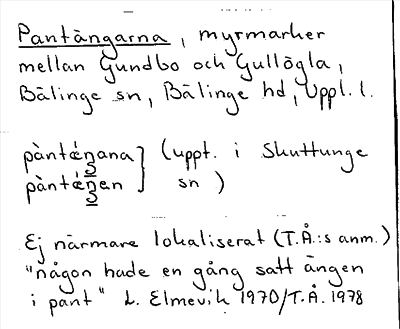 Pantängarna, myrmarker
mellan Gundbo och Gullögla,
Bälinge sn, Bälinge hd, Uppl. l.
pàntéŋana } (uppt. i Skuttunge
pàntéŋen } sn )
Ej närmare lokaliserat (T.Å.:s anm.)
"någon hade en gång satt ängen
i pant" L. Elmevik 1970/T.Å. 1978